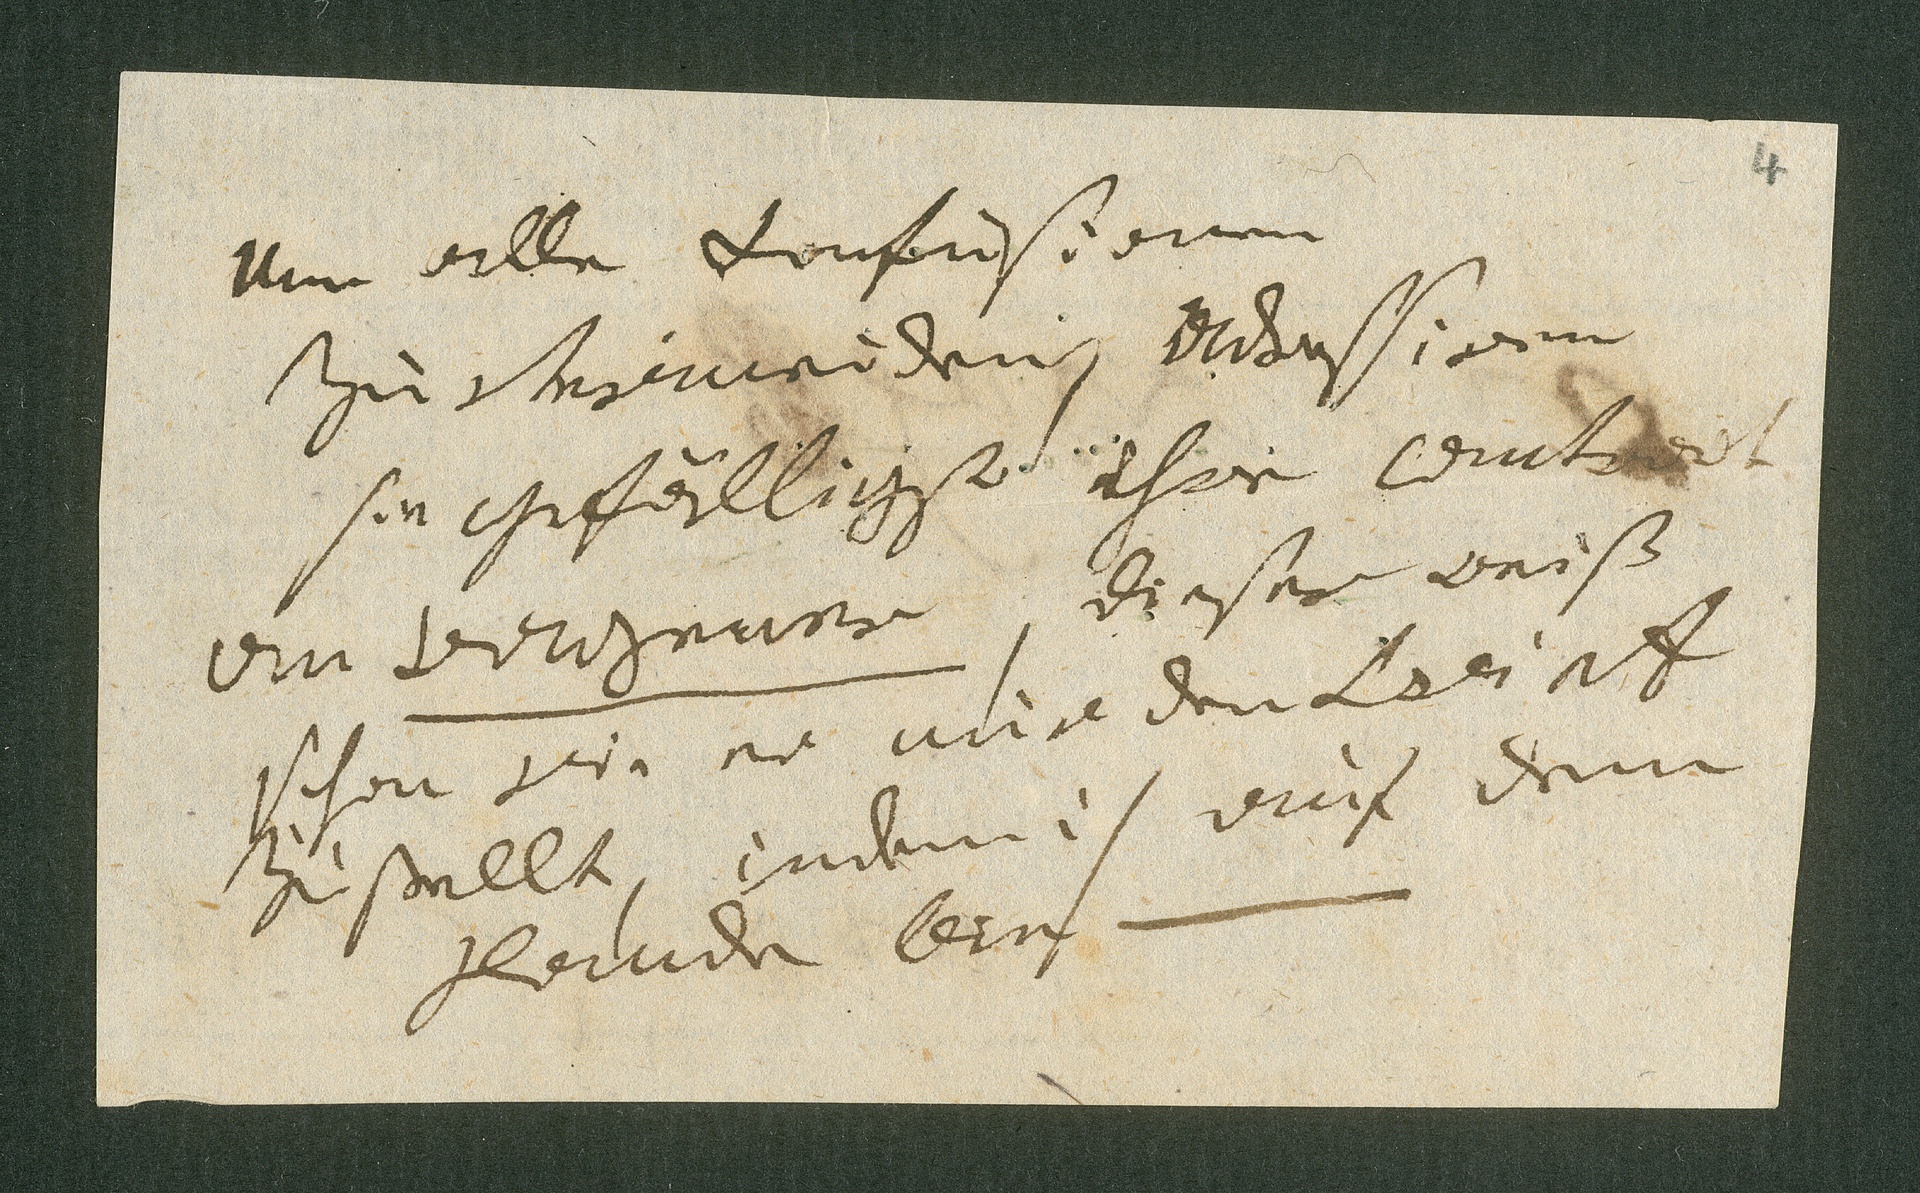 4
Um alle Konfusionen
zu vermeiden, adressiren
sie gefälligst ihre antwort
an , dieser weiß
schon wie er mir den Brief
zustellt, indem ich auf dem
Lande —